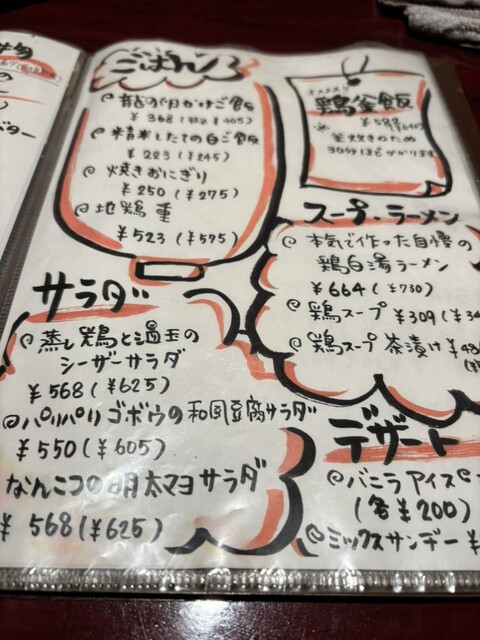 ごはん
龍の卵かけご飯
¥368(税込¥405)
精米したての白ご飯
¥223(¥245)
焼きおにぎり
¥250(¥275)
地鶏重
¥523(¥575)
オススメ!!
鶏釜飯
¥582
釜炊きのため
30分ほどかかります
スープ・ラーメン
本気で作った自慢の
鶏白湯ラーメン
¥664(¥730)
鶏スープ ¥309(¥34
鶏スープ茶漬け ¥43
サラダ
蒸し鶏と温玉の
シーザーサラダ
¥568(¥625)
パリパリゴボウの和風豆腐サラダ
¥550(¥605)
なんこつの明太マヨサラダ
¥568(¥625)
デザート
バニラアイス
(各¥200)
ミックスサンデー ¥
ター